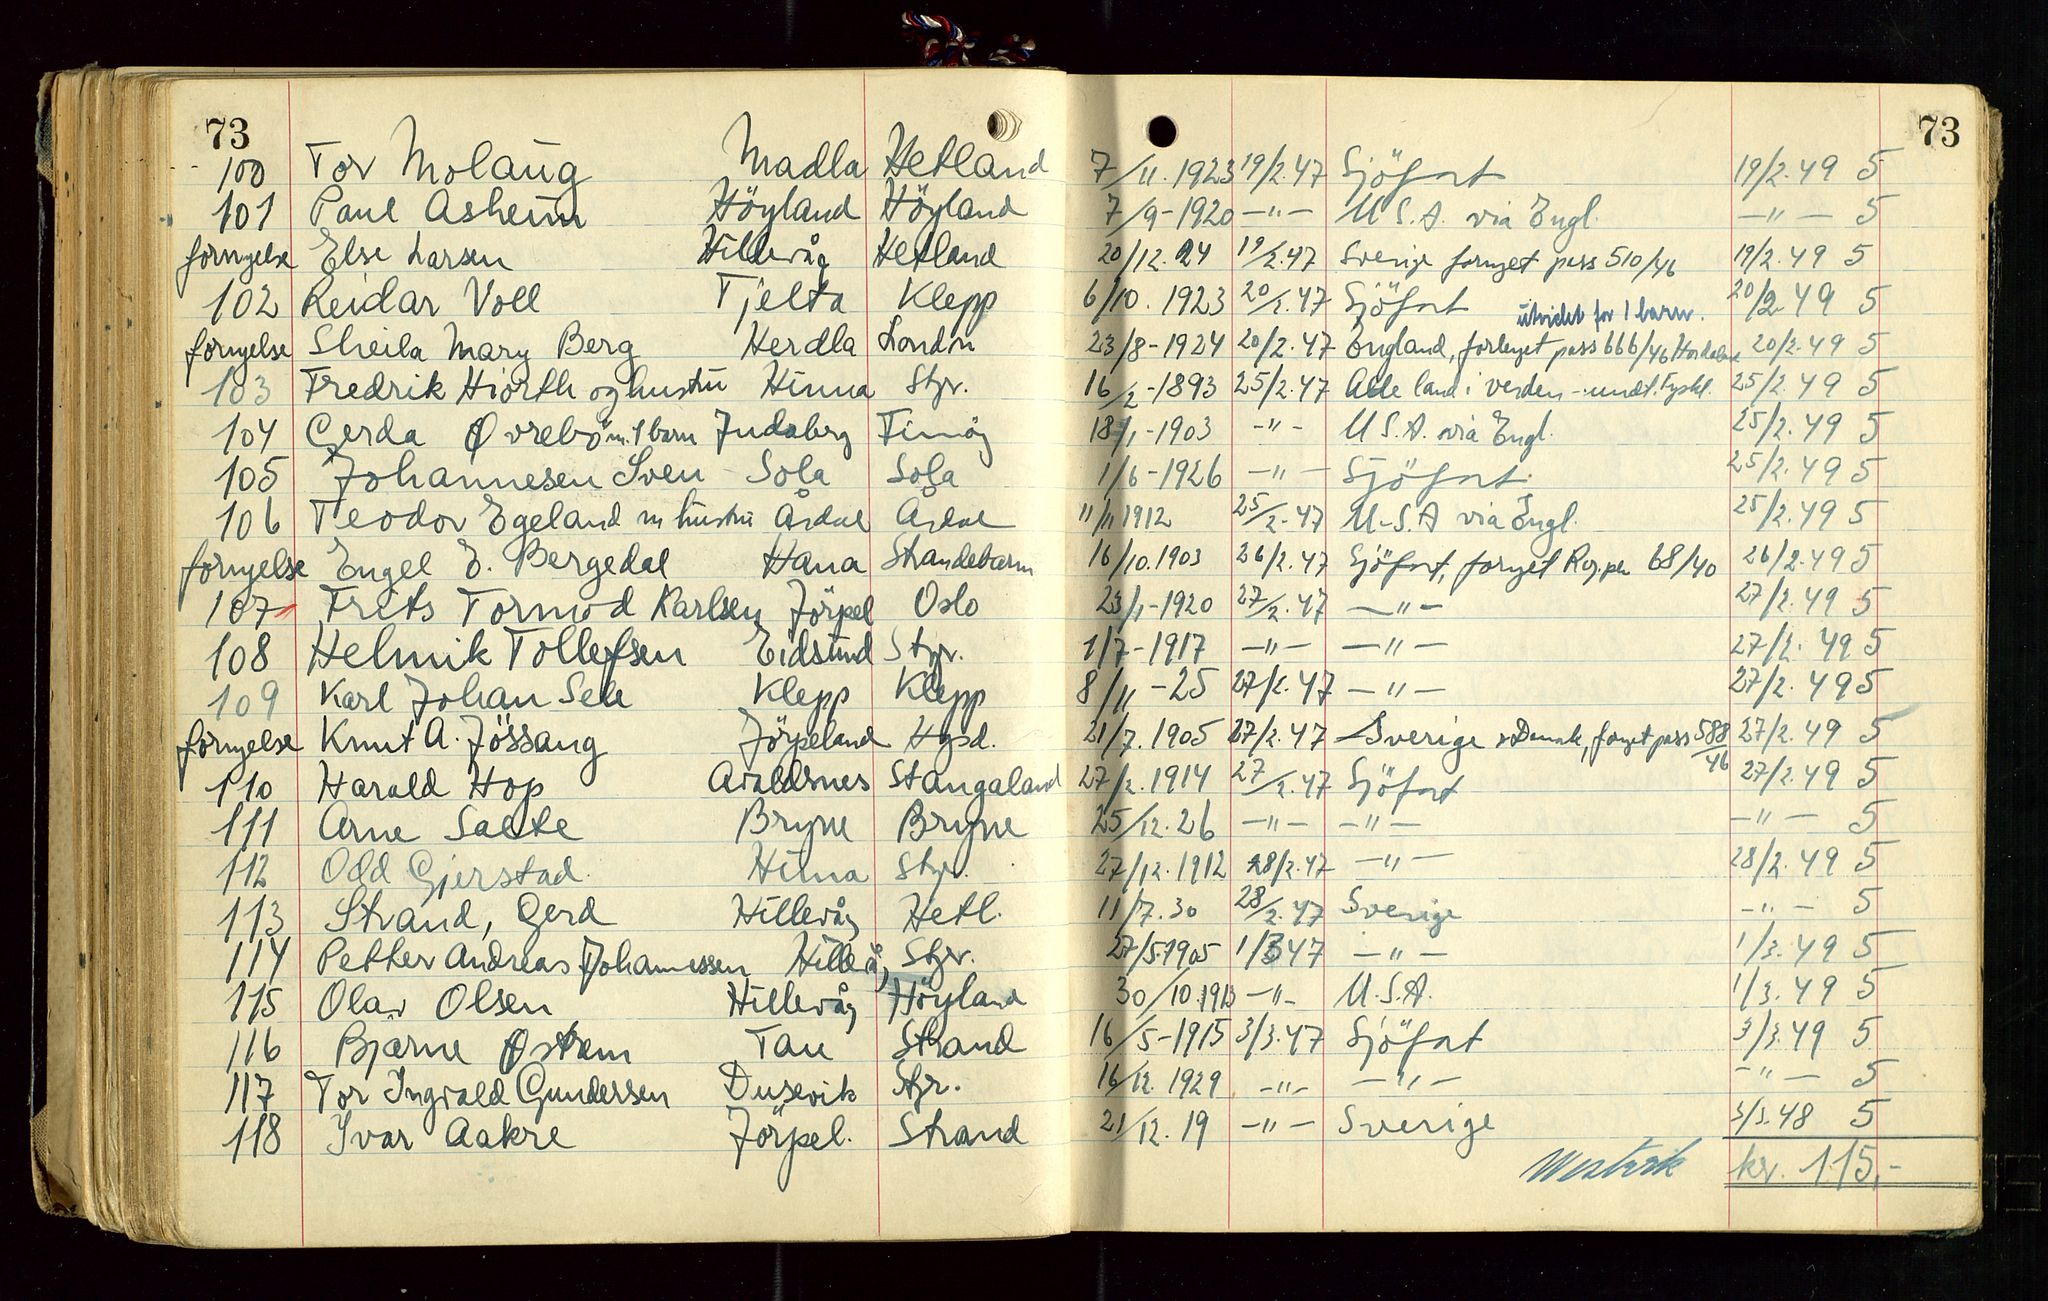 73 73
100 Tor Molaug Madla Hetland 7/11. 1923 19/2.47 Sjöfart 19/2.49 5
101 Paul Asheim Höyland Höyland 7/9-1920 -"- U.S.A. via Engl. -"- 5
fornyelse Else Larsen Hillevåg Hetland 20/12.24 19/2.47 Sverige fornyet pass 510/46 19/2.49 5
102 Reidar Voll Tjelta Klepp 6/10. 1923 20/2.47 Sjöfart 20/2 49 5
utvidet for 1 barn.
fornyelse Sheila Mary Berg Herdla London 23/8-1924 20/2.47 England, fornyet pass 666/46 20/2.49 5
103 Fredrik Hiorth og hustru Hinna Stgr. 16/2-1893 25/2.47 Alle land i verden - unt. Tyskl. 25/2.49 5
104 Gerda Øvrebö m. 1 barn Judaberg Finnöy 18/1-1903 -"- U.S.A. via Engl. 25/2.49 5
105 Johannesen Sven Sola Sola 1/6-1926 -"- Sjöfart. 25/2.49 5
106 Teodor Egeland m hustru Årdal Årdal 11/11 1912 25/2.47 U.S.A via Engl. 25/2.49 5
fornyelse Engel E. Bergedal Hana Strandebarm 16/10.1903 26/2.47 Sjöfart, fornyet 68/40 26/2.49 5
107 Frits Tormod Karlsen Jörpel Oslo 23/1-1920 27/2.47 -"- 27/2.49 5
108 Helmik Tollefsen Eidsund Stgr. 1/7-1917 -"- -"- 27/2. 49 5
109 Karl Johan Sele Klepp Klepp 8/11-25 27/2.47 -"- 27/2. 49 5
fornyelse Knut A. Jössang Jörpeland Högsd. 21/7.1905 27/2.47 Sverige o Danmk, fornyet pass 588/46 27/2.49 5
110 Harald Hop Avaldsnes Stangaland 27/2.1914 27/2.47 Sjöfart 27/2.49 5
111 Arne Saelte Bryne Bryne 25/12.26 -"- -"- -"- 5
112 Odd Gjerstad. Hinna Stgr. 27/12.1912 28/2.47 -"- 28/2.49 5
113 Strand, Gerd Hillevåg Hetl. 11/7.30 28/2.47 Sverige -"- 5
114 Petter Andreas Johannessen Hillevåg Stgr. 27/5.1905 1/3 47 -"- 1/3.49 5
115 Olav Olsen Hillevåg Höyland 30/10 1913 -"- U.S.A. 1/3.49 5
116 Bjarne Østrem Tau Strand 16/5-1915 3/3.47 Sjöfart 3/3.49 5
117 Tor Ingvald Gundersen Dusevik Stgr. 16/12. 1929 -"- -"- -"- 5
118 Ivar Aakre Jörpel. Strand 21/12.19 -"- Sverige 3/3.48 5
kr. 115,-